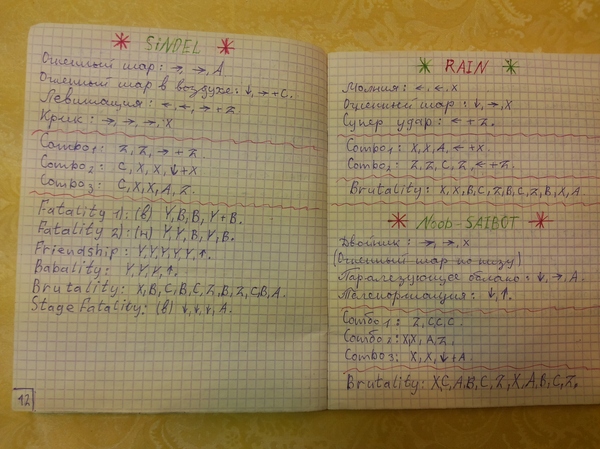 SINDEL
Огненный шар: →, →, A
Огненный шар в воздухе: ↓, → + C.
Левитация: ←, ←, → + Z.
Крик: →, →, →, X
Combo1: Z, Z, → + Z.
Combo2: C, X, X, ↓ + X
Combo3: C, X, X, A, Z.
Fatality 1): (в) Y, B, B, Y + B.
Fatality 2): (н) Y, Y, B, Y, B.
Friendship: Y, Y, Y, Y, Y, ↑.
Babality: Y, Y, Y, ↑.
Brutality: X, B, C, B, C, Z, B, Z, C, B, A.
Stage Fatality: (в) ↓, ↓, ↓, A.
42
RAIN
Молния: ←, ←, X
Огненный шар: ↓, →, X
Супер удар: ← + Z.
Combo1: X, X, A, ← + X.
Combo2: Z, Z, C, Z, ← + Z.
Brutality: X, X, B, C, Z, B, C, Z, B, X, A.
Noob-SAIBOT
Двойник: →, →, X
(Огненный шар по низу)
Паралезующее облако: ↓, →, A.
Телепортация: ↓, ↑.
Combo1: Z, C, C, C.
Combo2: X, X, A, Z.
Combo3: X, X, ↓ + A.
Brutality: X, C, A, B, C, Z, X, A, B, C, Z.